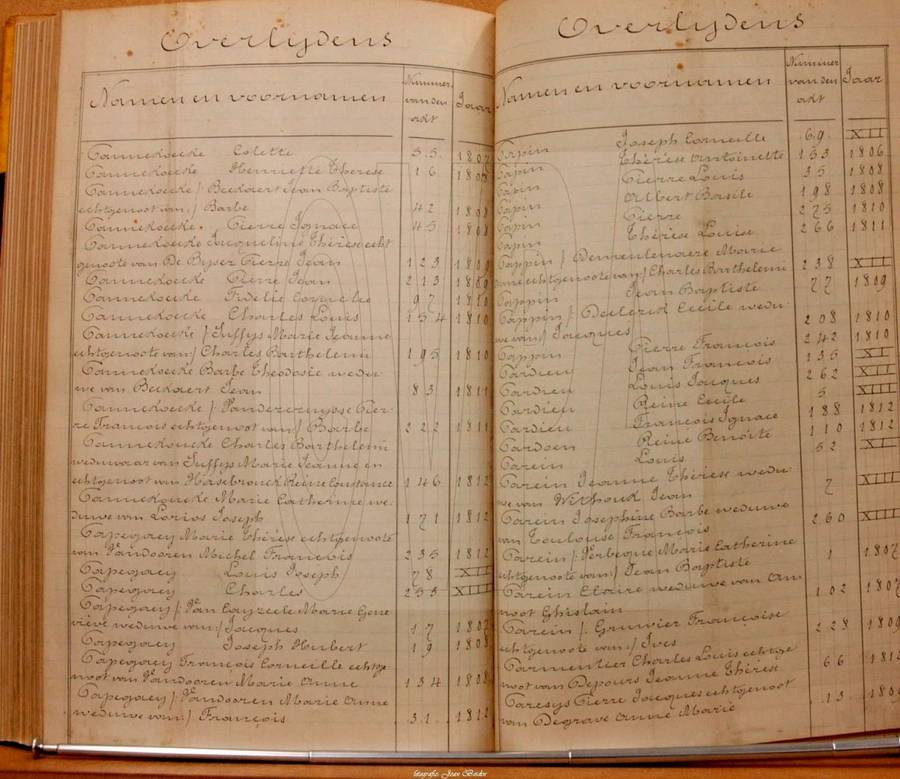 Overlydens
Namen en voornamen
Nummer van den akt
Jaar
Cannekoecke Colette 1807
Cannekoecke Henriette Thérèse 16 1808
Cannekoecke / Beekaert Jean Baptiste
echtgenoot van / Barbe 42 1808
Cannekoecke Pierre Ignace 45 1808
Cannekoecke Jacqueline Thérèse echt
genoote van De Byser Pierre Jean 123 1809
Cannekoecke Pierre Jean 213 1809
Cannekoecke Fidelie Cornelie 97 1810
Cannekoecke Charles Louis 154 1810
Cannekoecke / Juffys Marie Jeanne
echtgenoote van / Charles Barthelemi 195 1810
Cannekoecke Barbe Theodosie wedu
we van Beekaert Jean 83 1811
Cannekoecke / Pier-
re Francois echtgenoot van / Barbe 222 1811
Cannekoucke Charles Barthelemi
weduwaar van Juffys Marie Jeanne en
echtgenoot van Hasebrouck Reine Constance 146 1812
Cannekoucke Marie Catherine we-
duwe van Lorios Joseph 171 1812
Capegaey Marie Thérèse echtgenoote
van Vandooren Michel François 235 1812
Capegaey Louis Joseph 78 XII
Capegaey Charles 253 XIII
Capegaey / Van Eayzeele Marie Gene
viève weduwe van / Jacques 17 1807
Capegaey Joseph Hubert 19 1808
Capegaey François Corneille echtge
noot van Vandooren Marie Anne 134 1808
Capegaey / Vandooren Marie Anne
weduwe van / François 31 1812
Overlydens
Namen en voornamen
Nummer van den akt
Jaar
Capin Joseph Corneille 69 XII
Capin Thérèse Antoinette 153 1806
Capin Pierre Louis 35 1808
Capin Albert Basile 198 1808
Capin Pierre 275 1810
Capin Thérèse Louise 266 1811
Cappin / Demeulenaere Marie
Anne echtgenoote van / Charles Barthelemi 238 XII
Cappin Jean Baptiste 77 1809
Cappin / Declerck Cecile wedu-
we van / Jacques 208 1810
Cappin Pierre François 242 1810
Cardien Jean François 135 XI
Cardien Louis Jacques 262 XII
Cardien Reine Cecile 5 XIII
Cardien François Ignace 188 1812
Cardoen Reine Benoite 110 1812
Carein Louis 52 XI
Carein Jeanne Thérèse wedu-
we van Jean 7 XIII
Carein Josephine Barbe weduwe
van Toulouse François 260 XIII
Carein / Verbeque Marie Catherine
echtgenoote van / Jean Baptiste 1 1807
Carein Claire weduwe van Am
moot Ghislain 102 1807
Carein / Gruwier Françoise
echtgenoote van / Ives 228 1809
Carmentier Charles Louis echtge
noot van Depours Jeanne Thérèse 66
Caresys Pierre Jacques echtgenoot
van Degrave Anne Marie 13
fotografie: Jean Bordon